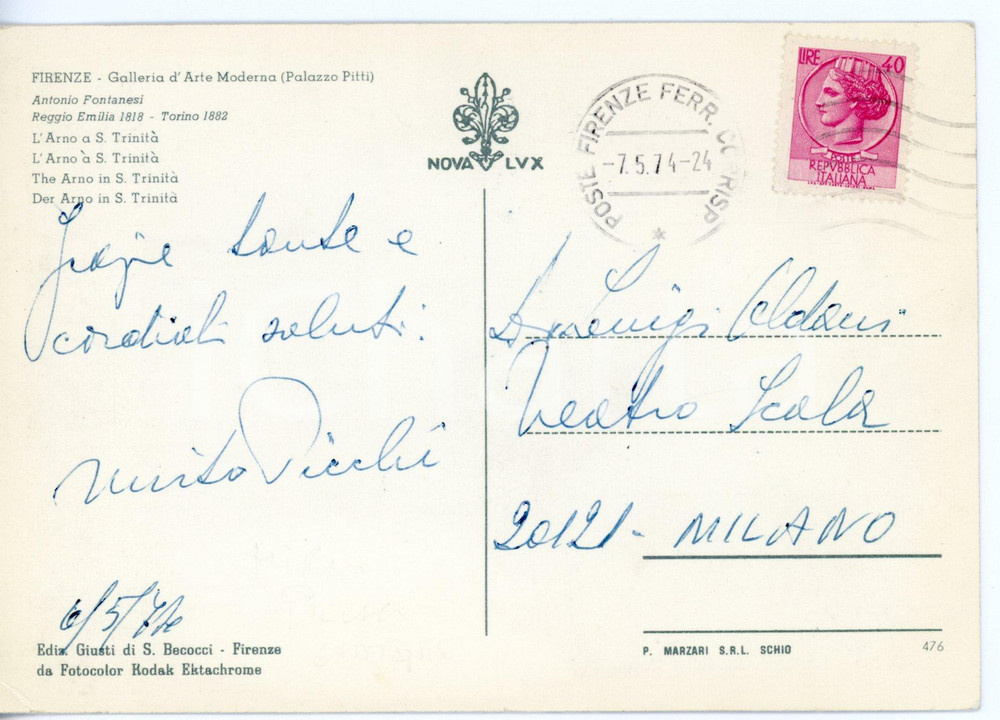 FIRENZE - Galleria d'Arte Moderna (Palazzo Pitti)
Antonio Fontanesi
Reggio Emilia 1818 - Torino 1882
L'Arno a S. Trinità
L'Arno à S. Trinità
The Arno in S. Trinità
Der Arno in S. Trinità
NOVA LVX
POSTE FIRENZE FERR. CORRISP
-7.5.74-24
LIRE 40
POSTE
REPVBBLICA
ITALIANA
Grazie tante e
cordiali saluti:
Mirto Picchi
6/5/74
Luigi Oldani
Teatro Scala
20121 - MILANO
Ediz. Giusti di S. Becocci - Firenze
da Fotocolor Kodak Ektachrome
P. MARZARI S.R.L. SCHIO
476